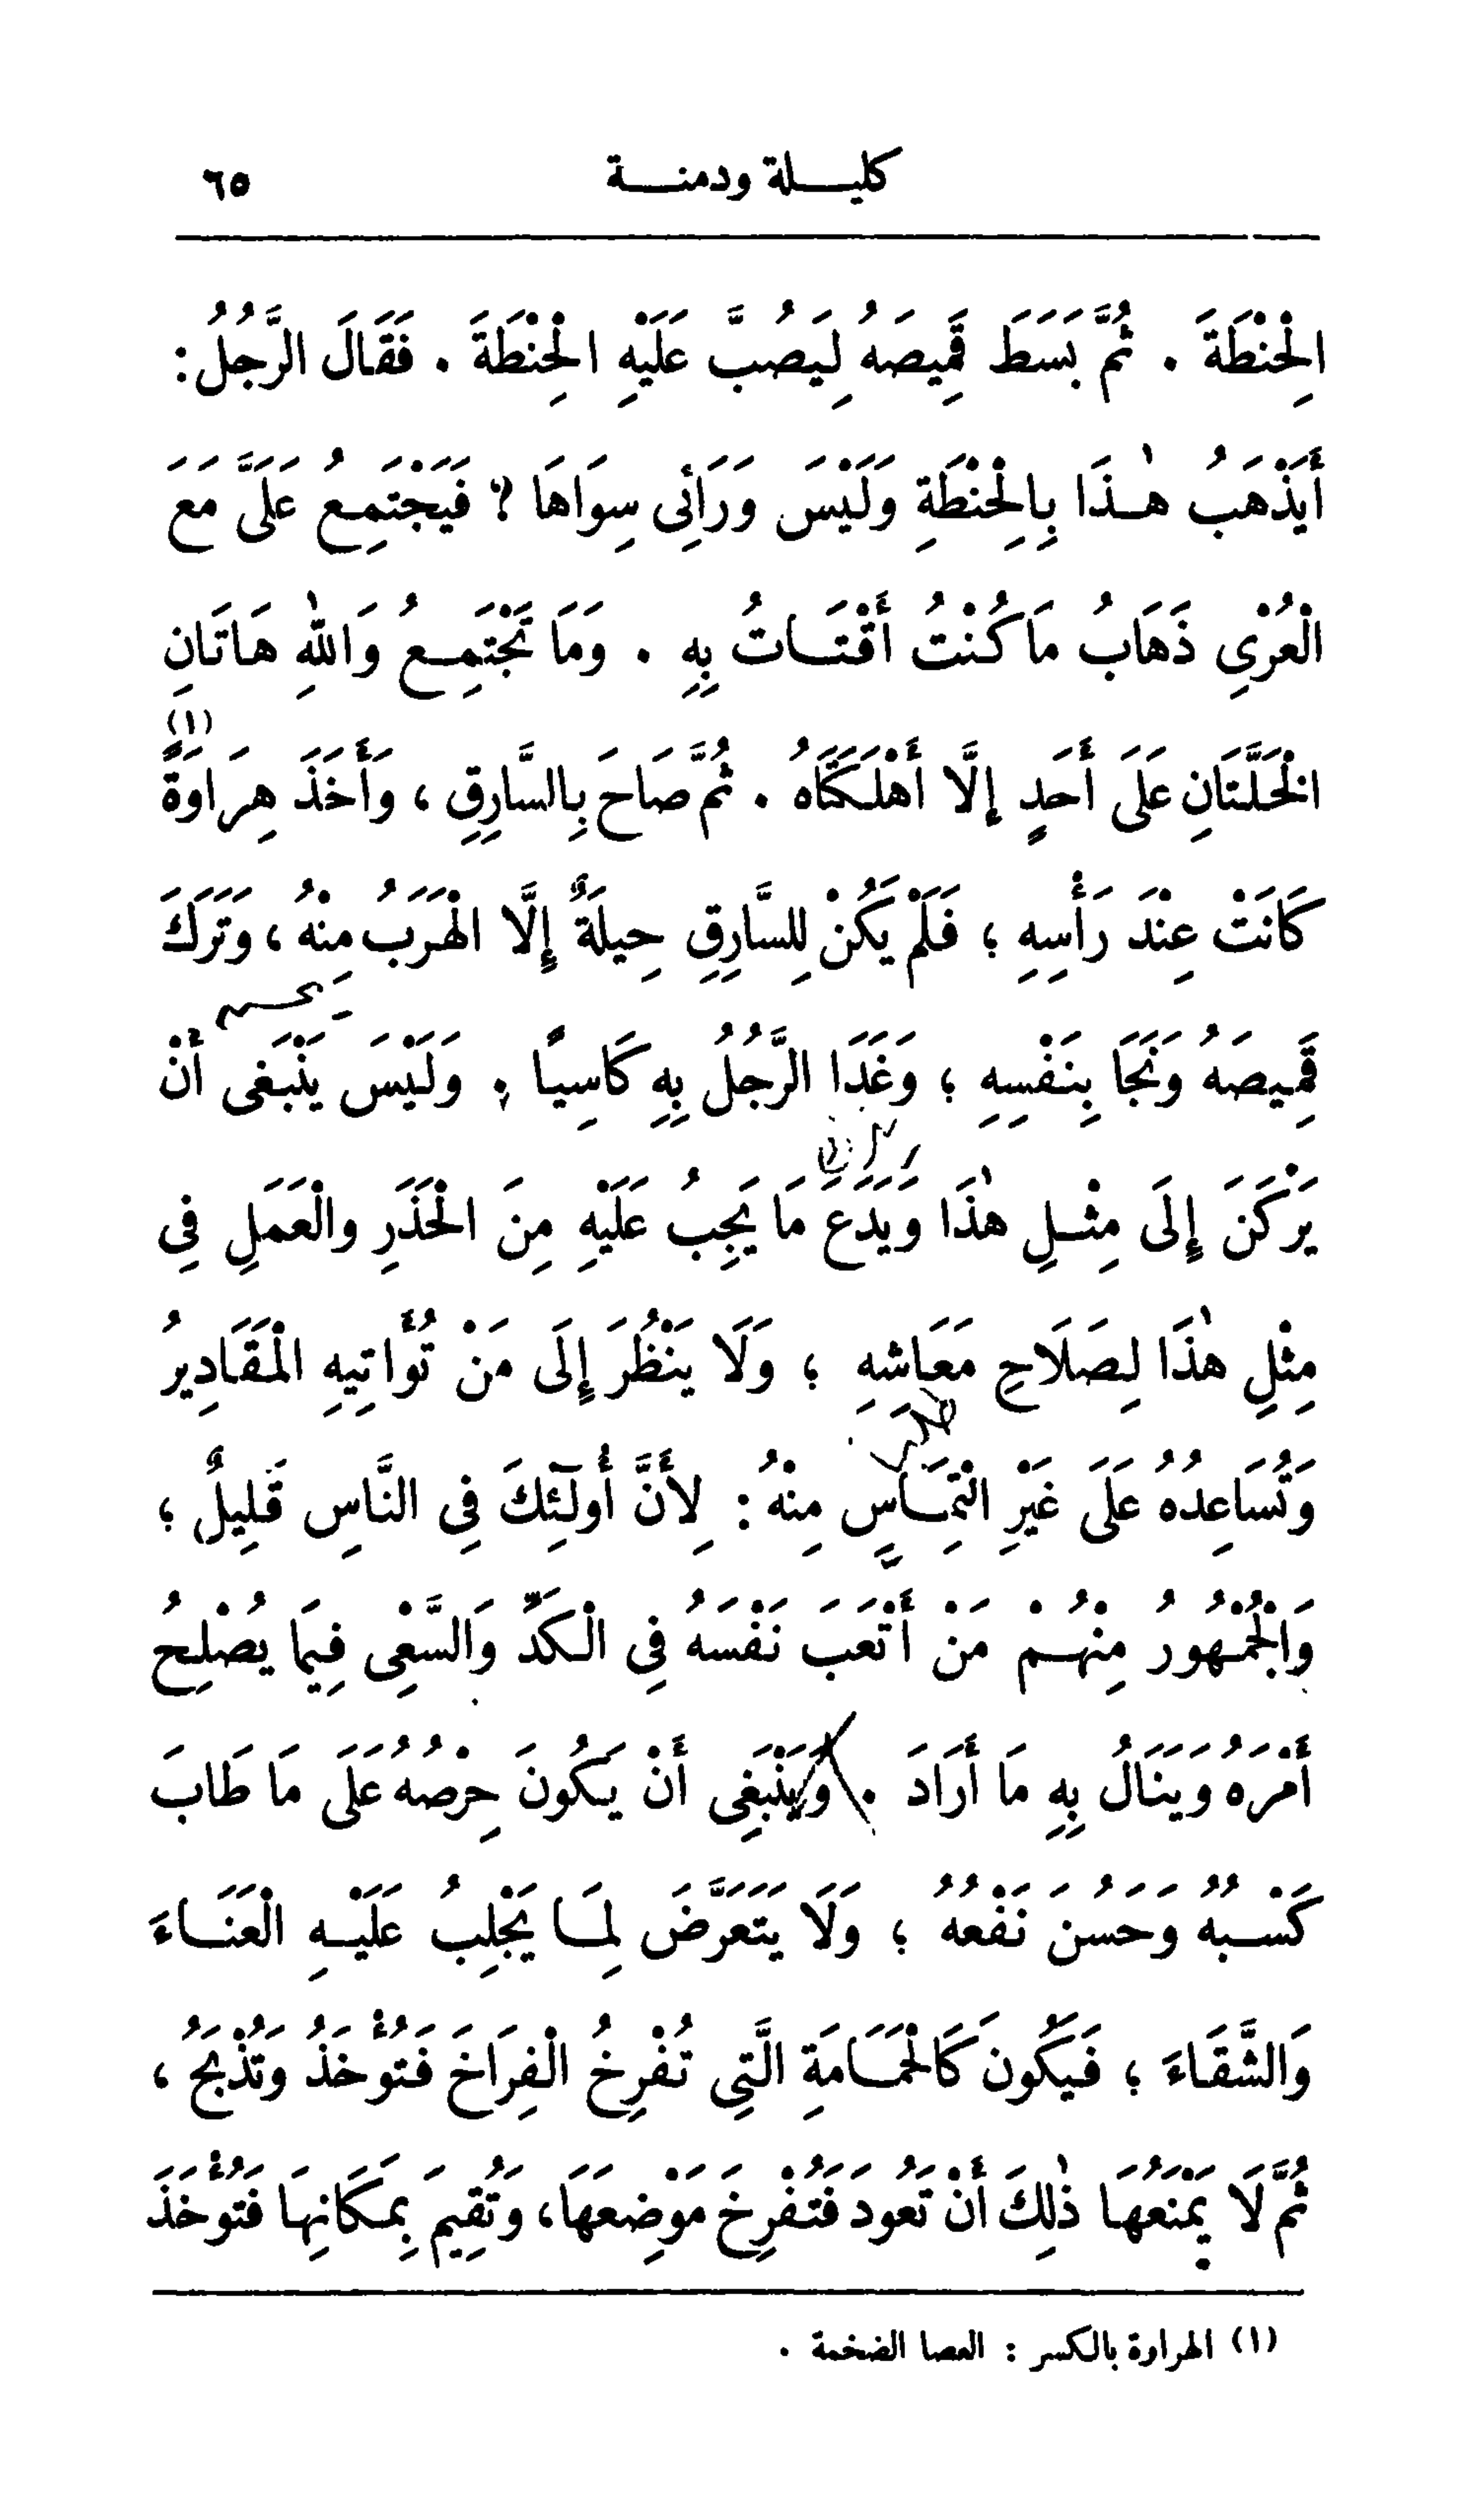 كليلة ودمنة ٦٥
الْحِنْطَةَ . ثُمَّ بَسَطَ قَمِيصَهُ لِيَصُبَّ عَلَيْهِ الْحِنْطَةَ . فَقَالَ الرَّجُلُ :
أَيَذْهَبُ هٰذَا بِالْحِنْطَةِ وَلَيْسَ وَرَائِى سِوَاهَا ؟ فَيَجْتَمِعُ عَلَىَّ مَعَ
الْعُرْىِ ذَهَابُ مَا كُنْتُ أَقْتَاتُ بِهِ . وَمَا تَجْتَمِعُ وَاللهِ هَاتَانِ
الْخَلَّتَانِ عَلَى أَحَدٍ إِلَّا أَهْلَكَتَاهُ . ثُمَّ صَاحَ بِالسَّارِقِ ، وَأَخَذَ هِرَاوَةً (١)
كَانَتْ عِنْدَ رَأْسِهِ ؛ فَلَمْ يَكُنْ لِلسَّارِقِ حِيلَةٌ إِلَّا الْهَرَبُ مِنْهُ ، وَتَرَكَ
قَمِيصَهُ وَنَجَا بِنَفْسِهِ ؛ وَغَدَا الرَّجُلُ بِهِ كَاسِيًا . وَلَيْسَ يَنْبَغِى أَنْ
يَرْكَنَ إِلَى مِثْلِ هٰذَا وَيَدَعَ مَا يَجِبُ عَلَيْهِ مِنَ الْحَذَرِ وَالْعَمَلِ فِى
مِثْلِ هٰذَا لِصَلَاحِ مَعَاشِهِ ؛ وَلَا يَنْظُرَ إِلَى مَنْ تُؤَاتِيهِ الْمَقَادِيرُ
وَتُسَاعِدُهُ عَلَى غَيْرِ الْتِمَاسٍ مِنْهُ : لِأَنَّ أُولَٰئِكَ فِى النَّاسِ قَلِيلٌ ؛
وَالْجُمْهُورُ مِنْهُمْ مَنْ أَتْعَبَ نَفْسَهُ فِى الْكَدِّ وَالسَّعْىِ فِيمَا يُصْلِحُ
أَمْرَهُ وَيَنَالُ بِهِ مَا أَرَادَ . وَيَنْبَغِى أَنْ يَكُونَ حِرْصُهُ عَلَى مَا طَابَ
كَسْبُهُ وَحَسُنَ نَفْعُهُ ؛ وَلَا يَتَعَرَّضَ لِمَا يَجْلِبُ عَلَيْهِ الْعَنَاءَ
وَالشَّقَاءَ ؛ فَيَكُونَ كَالْحَمَامَةِ الَّتِى تُفْرِخُ الْفِرَاخَ فَتُؤْخَذُ وَتُذْبَحُ ،
ثُمَّ لَا يَمْنَعُهَا ذٰلِكَ أَنْ تَعُودَ فَتُفْرِخَ مَوْضِعَهَا ، وَتُقِيمَ بِمَكَانِهَا فَتُؤْخَذَ
(١) الهراوة بالكسر : العصا الضخمة .